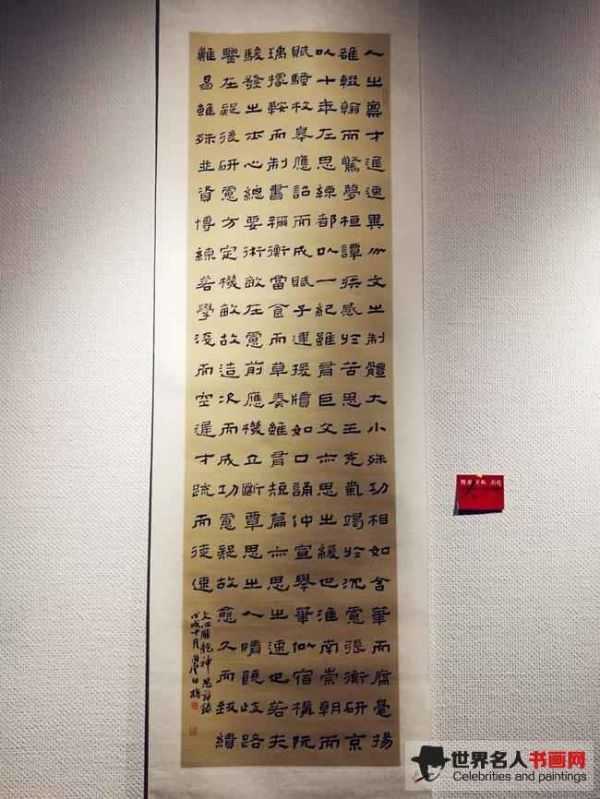 人之稟才遲速異分文之制體大小殊功相如含筆而腐毫揚
雄輟翰而驚夢桓譚疾感於苦思王充氣竭於沈慮張衡研京
以十年左思練都以一紀雖有巨文亦思之緩也淮南崇朝而
賦騷枚皋應詔而成賦子建援牘如口誦仲宣舉筆似宿構阮
瑀據鞍而制書禰衡當食而草奏雖有短篇亦思之速也若夫
駿發之士心總要術敏在慮前應機立斷覃思之人情饒歧路
鑒在疑後研慮方定機敏故造次而成功慮疑故愈久而致績
難易雖殊並資博練若學淺而空遲才疏而徒速
文心雕龍神思
戊戌十月
世界名人书画网
Celebrities and paintings